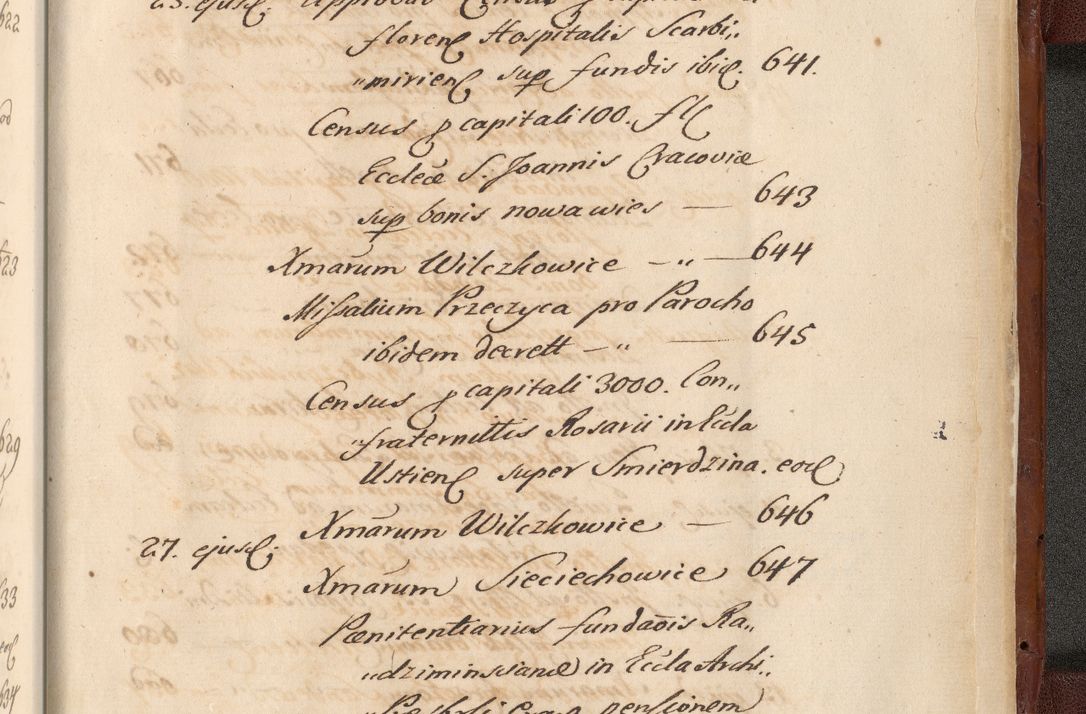 florenꝭ Hospitalis Scarbi„
„mirienꝭ sup fundis ibiꝭ. 641.
Census ꝑ capitali 100. flꝭ
Eccleæ S. Joannis Cracoviæ
sup bonis nowa wies — 643
Xmarum Wilczkowice — „ — 644
Missalium Przeczyca pro Parocho
ibidem decrett — „ — 645
Census ꝑ capitali 3000. Con„
„fraternittis Rosarii in Eccla
Ustienꝭ super Smierdzina. eoꝭ
Xmarum Wilczkowice — 646
27. ejusꝭ: Xmarum Sieciechowice 647
Pœnitentiarius fundaōis Ra„
„dziminsciance in Eccla Archi„
pensionem
622
623
629
633
634